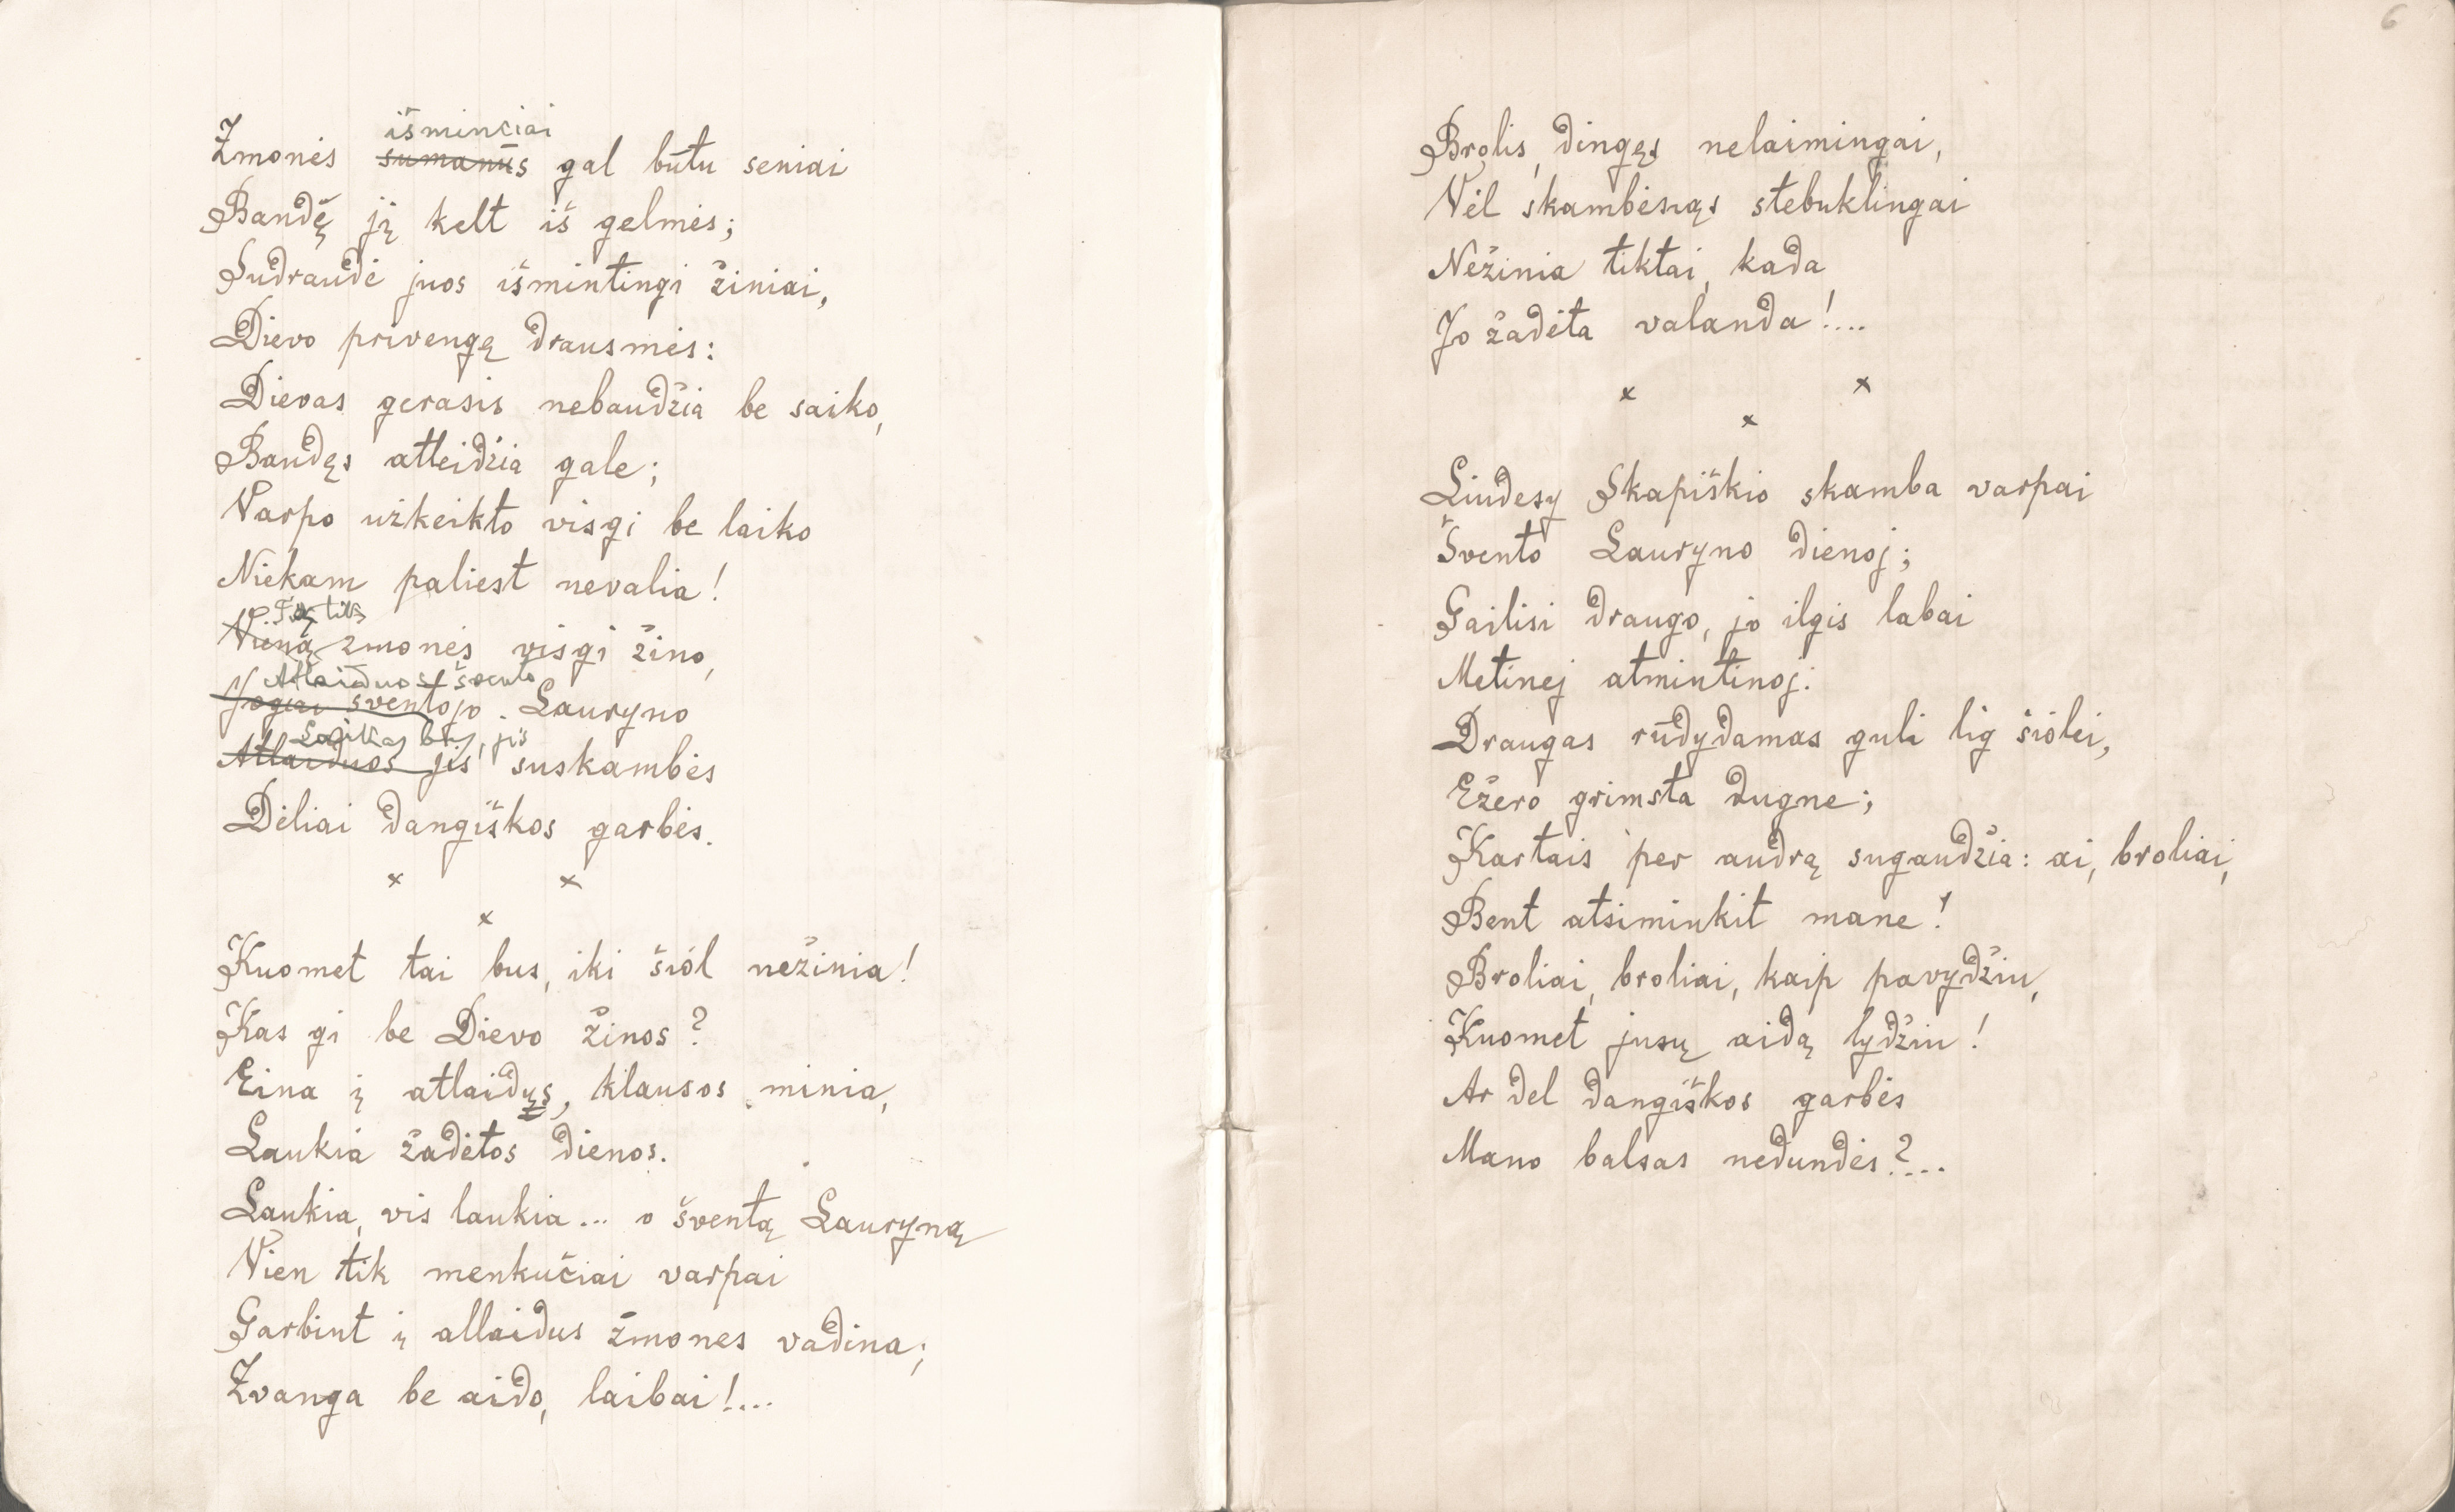 išminčiai
Žmonės sumanūs gal būtu seniai
Bandę jį kelt iš gelmės;
Sudraudė juos išmintingi žiniai,
Dievo privengę drausmės:
Dievas gerasis nebaudžia be saiko,
Baudęs atleidžia gale;
Varpo užkeikto visgi be laiko
Niekam paliest nevalia!
tik
Vieną žmonės visgi žino,
Atlaiduos švento
Jogei šventojo Lauryno
Laikas bus, jis
Atlaiduos jis suskambės
Dėliai dangiškos garbės.
x x
x
Kuomet tai bus, iki šiol nežinia!
Kas gi be Dievo žinos?
Eina į atlaidus, klausos minia,
Laukia žadėtos dienos.
Laukia, vis laukia... o šventą Lauryną
Vien tik menkučiai varpai
Garbint į atlaidus žmones vadina;
Zvanga be aido, laibai!...
6
Brolis, dingęs nelaimingai,
Vėl skambėsiąs stebuklingai
Nežinia tiktai, kada
Jo žadėta valanda!...
x x
x
Liūdesy Skapiškio skamba varpai
Švento Lauryno dienoj;
Gailisi draugo, jo ilgis labai
Metinej atmintinoj:
Draugas rūdydamas guli lig šiolei,
Ežero grimsta dugne;
Kartais per audrą sugaudžia: ai, broliai,
Bent atsiminkit mane!
Broliai, broliai, kaip pavydžiu,
Kuomet jusų aidą lydžiu!
Ar del dangiškos garbės
Mano balsas nedundės?...